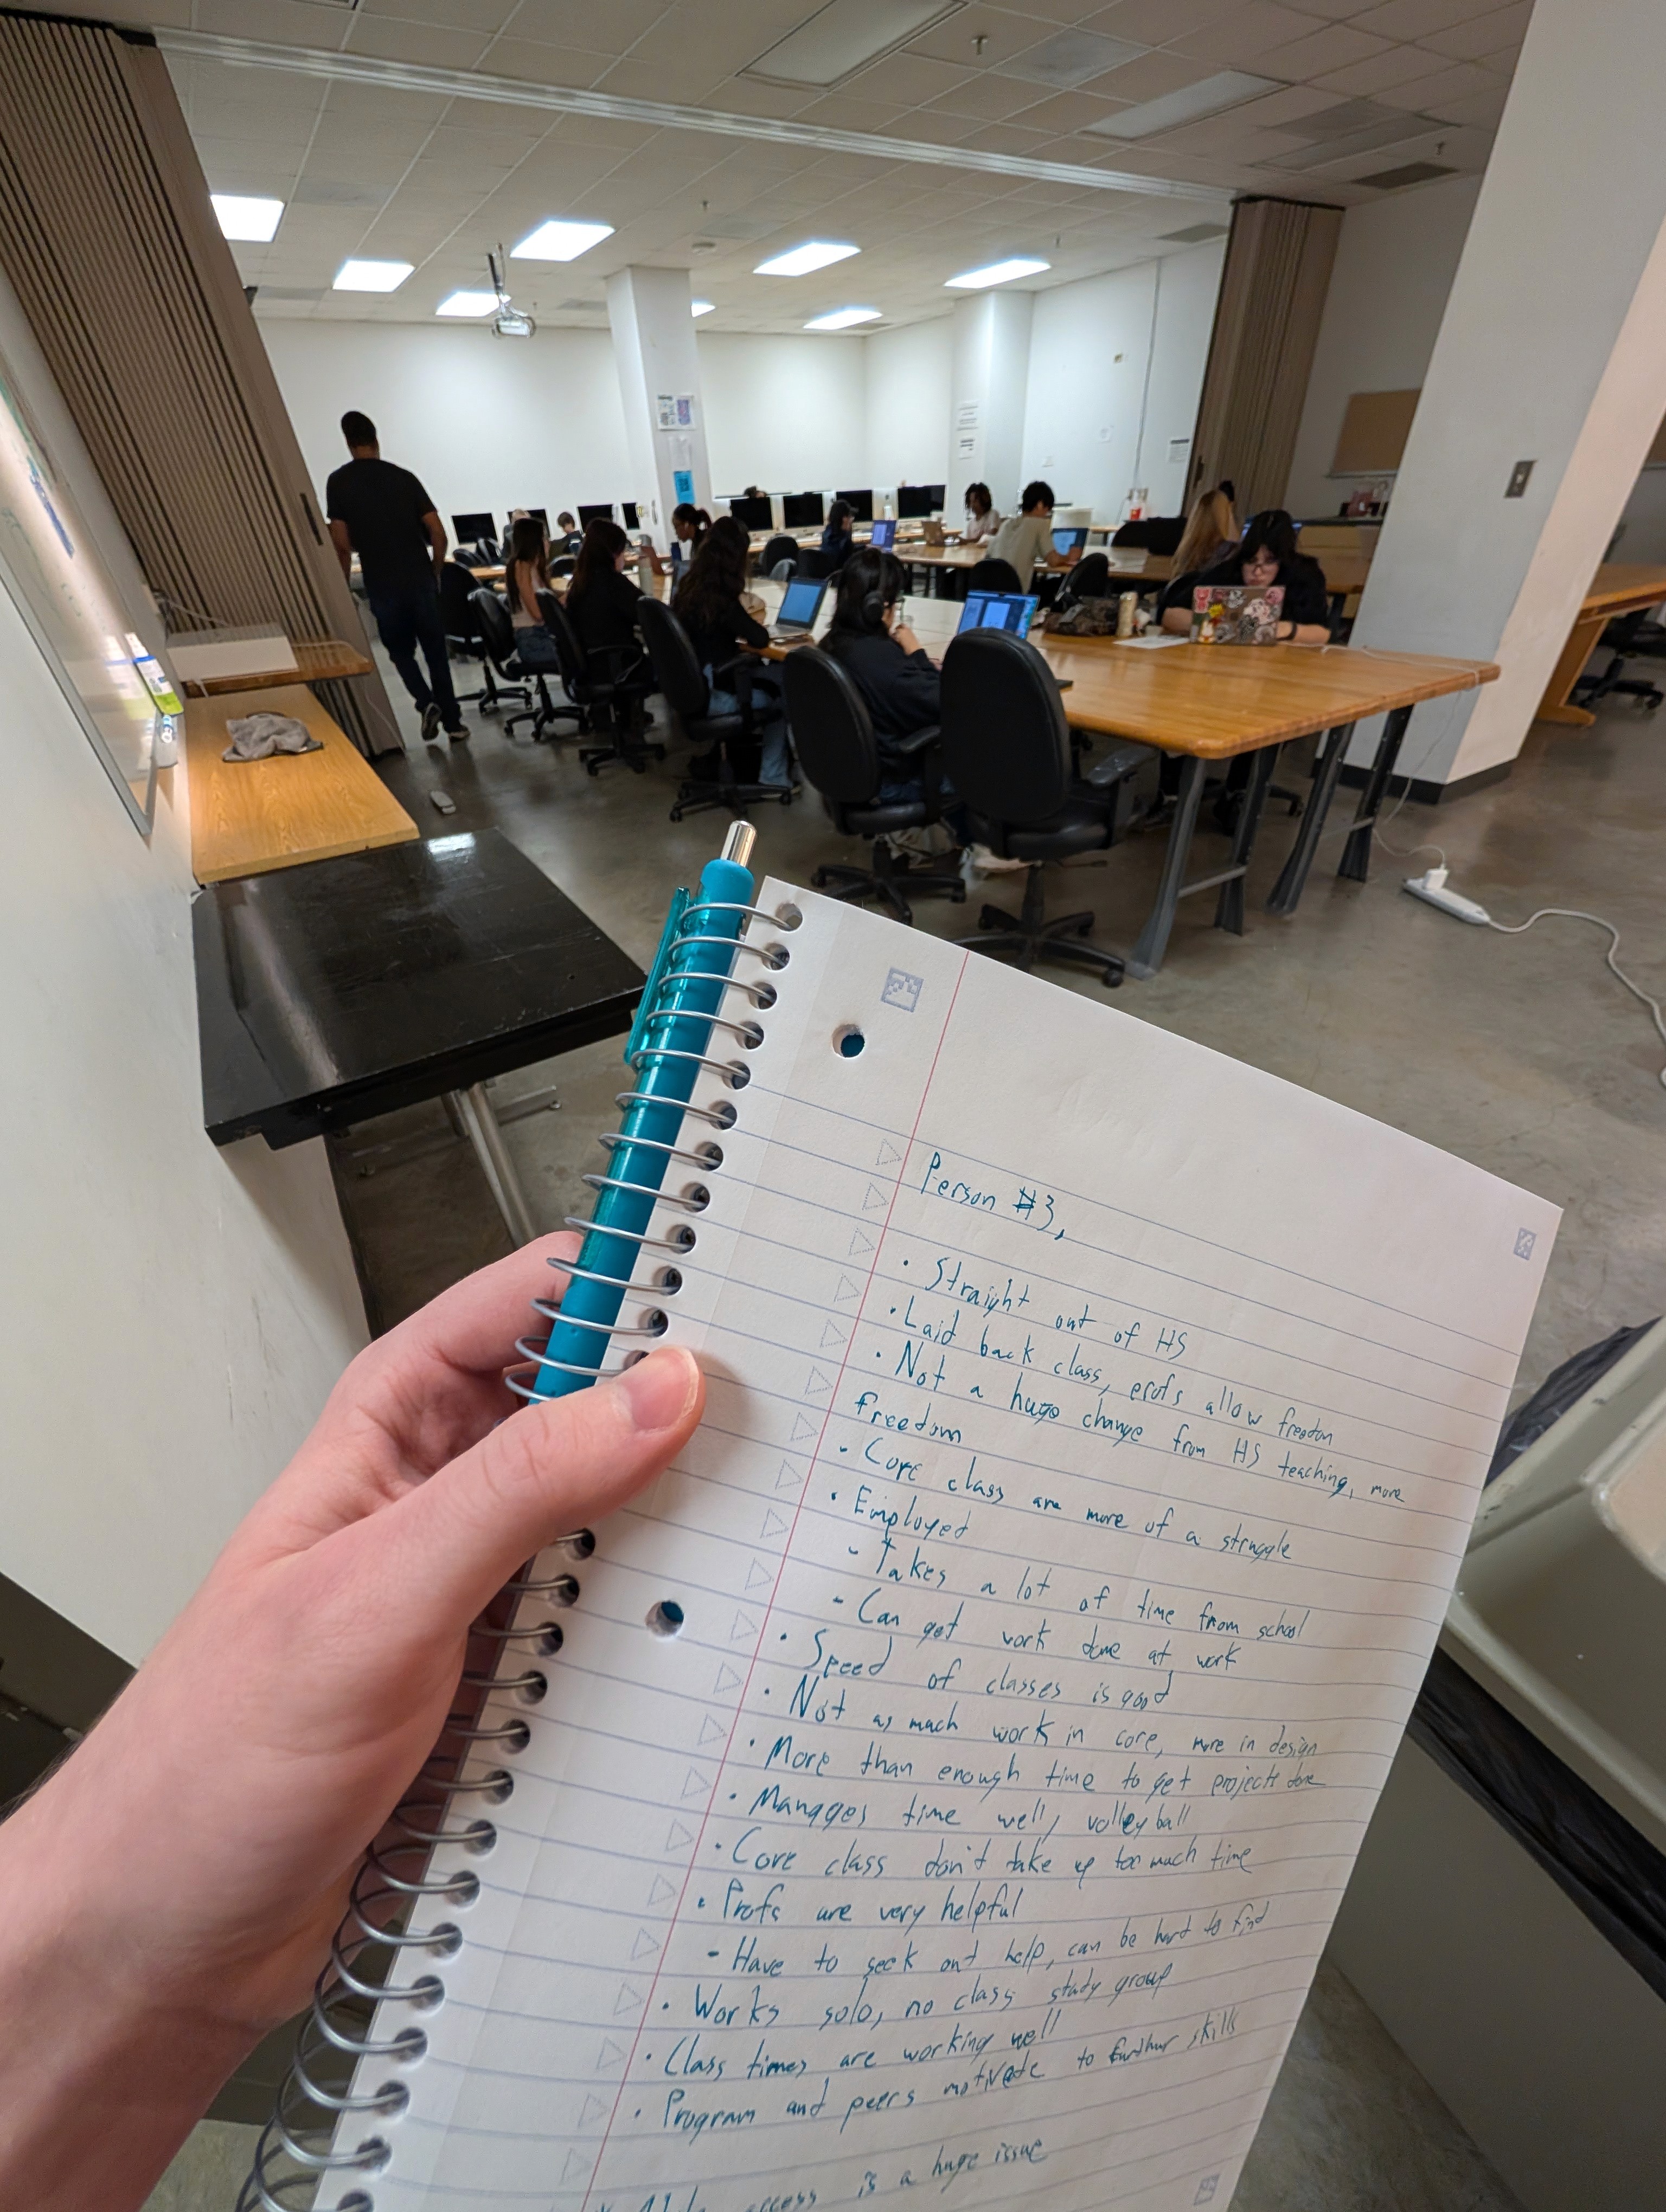 Person #3,
• Straight out of HS
• Laid back class, profs allow freedom
• Not a huge change from HS teaching, more
freedom
- Core class are more of a struggle
• Employed
- Takes a lot of time from school
- Can get work done at work
• Speed of classes is good
• Not as much work in core, more in design
• More than enough time to get projects done
• Manages time well, volleyball
• Core class don't take up too much time
• Profs are very helpful
- Have to seek out help, can be hard to find
• Works solo, no class study group
• Class times are working well
• Program and peers motivate to further skills
access is a huge issue